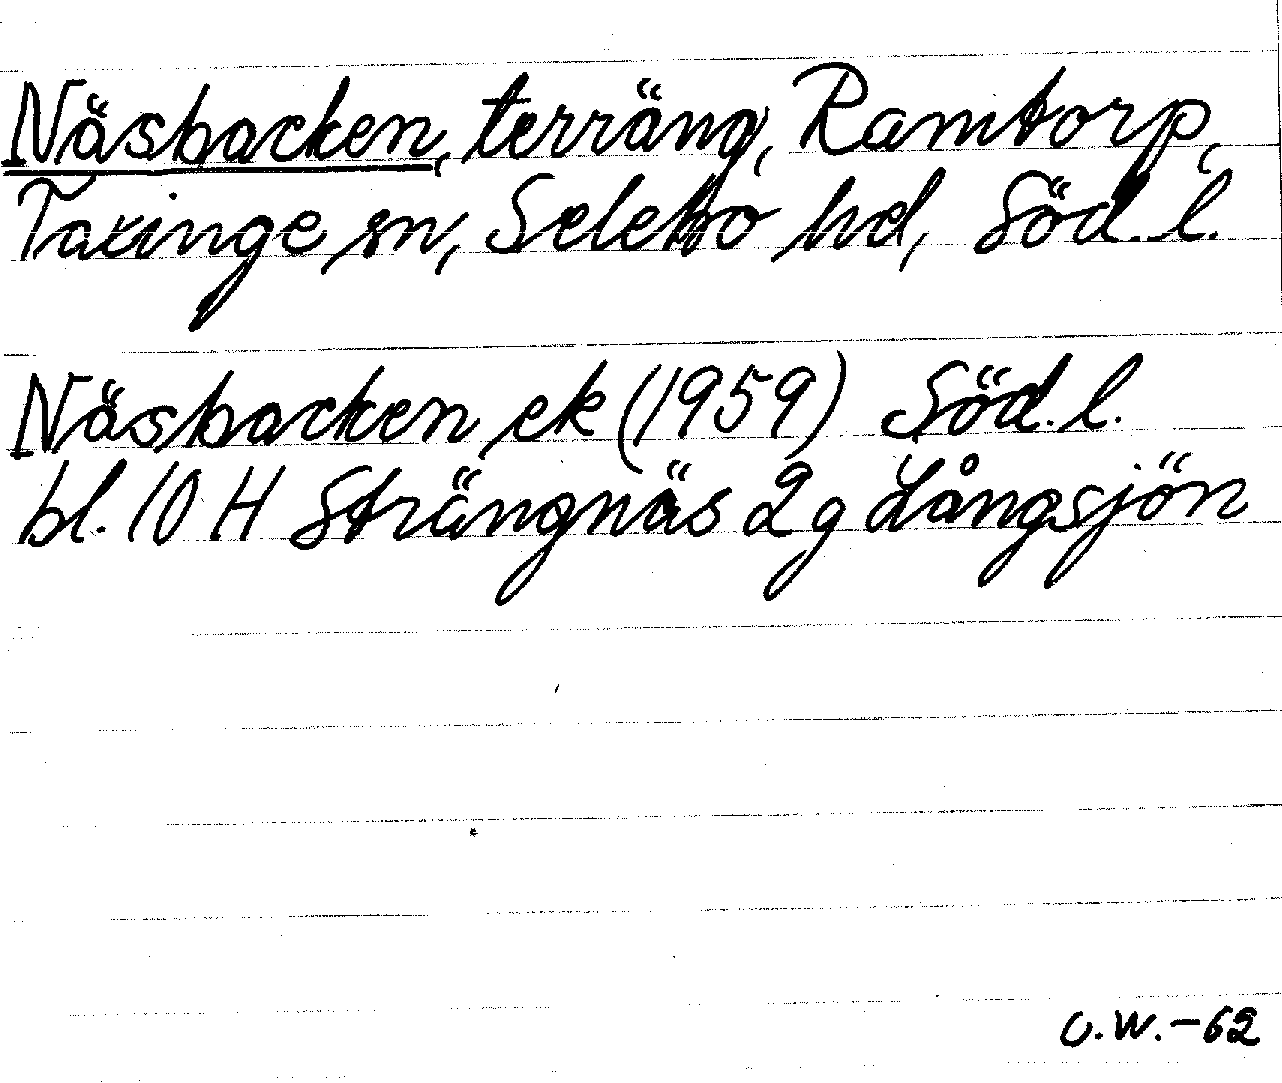 Näsbacken, terräng, Ramtorp,
Taxinge sn, Selebo hd, Söd. l.
Näsbacken ek (1959) Söd. l.
bl. 10 H Strängnäs 2 g Långsjön
O.W. -62